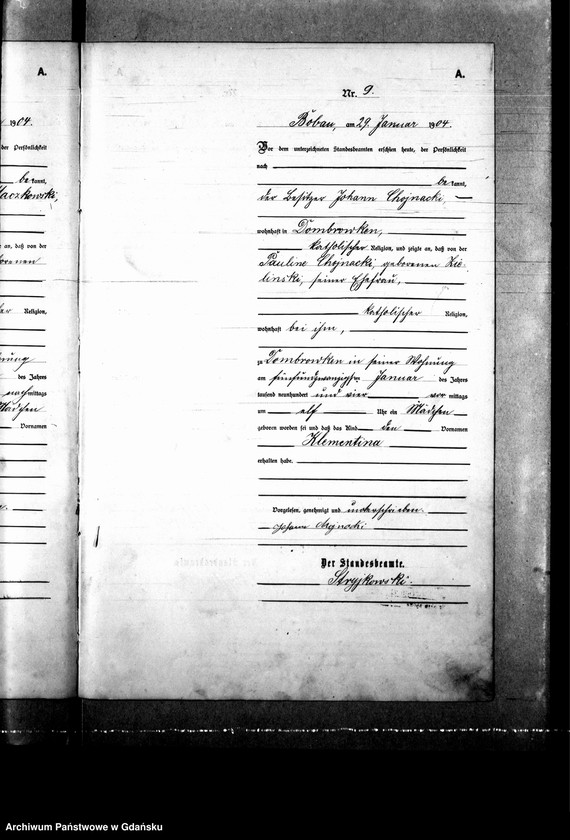 A.
1904.
der Persönlichkeit
be kannt,
Maczkowski,
e an, daß von der
borenen
Religion,
des Jahres
nachmittags
Mädchen
Vornamen
A.
Nr. 9.
Bobau, am 29. Januar 1904.
Vor dem unterzeichneten Standesbeamten erschien heute, der Persönlichkeit
nach
be kannt,
der Besitzer Johann Chojnacki,
wohnhaft in Dombrowken,
katholischer Religion, und zeigte an, daß von der
Pauline Chojnacki, geborenen Zie-
linski, seiner Ehefrau,
katholischer Religion,
wohnhaft bei ihm,
zu Dombrowken in seiner Wohnung
am fünfundzwanzigsten Januar des Jahres
tausend neunhundert und vier vor mittags
um elf Uhr ein Mädchen
geboren worden sei und daß das Kind den Vornamen
Klementina
erhalten habe.
Vorgelesen, genehmigt und unterschrieben.
Johann Chojnacki
Der Standesbeamte.
Stryjkowski.
Archiwum Państwowe w Gdańsku